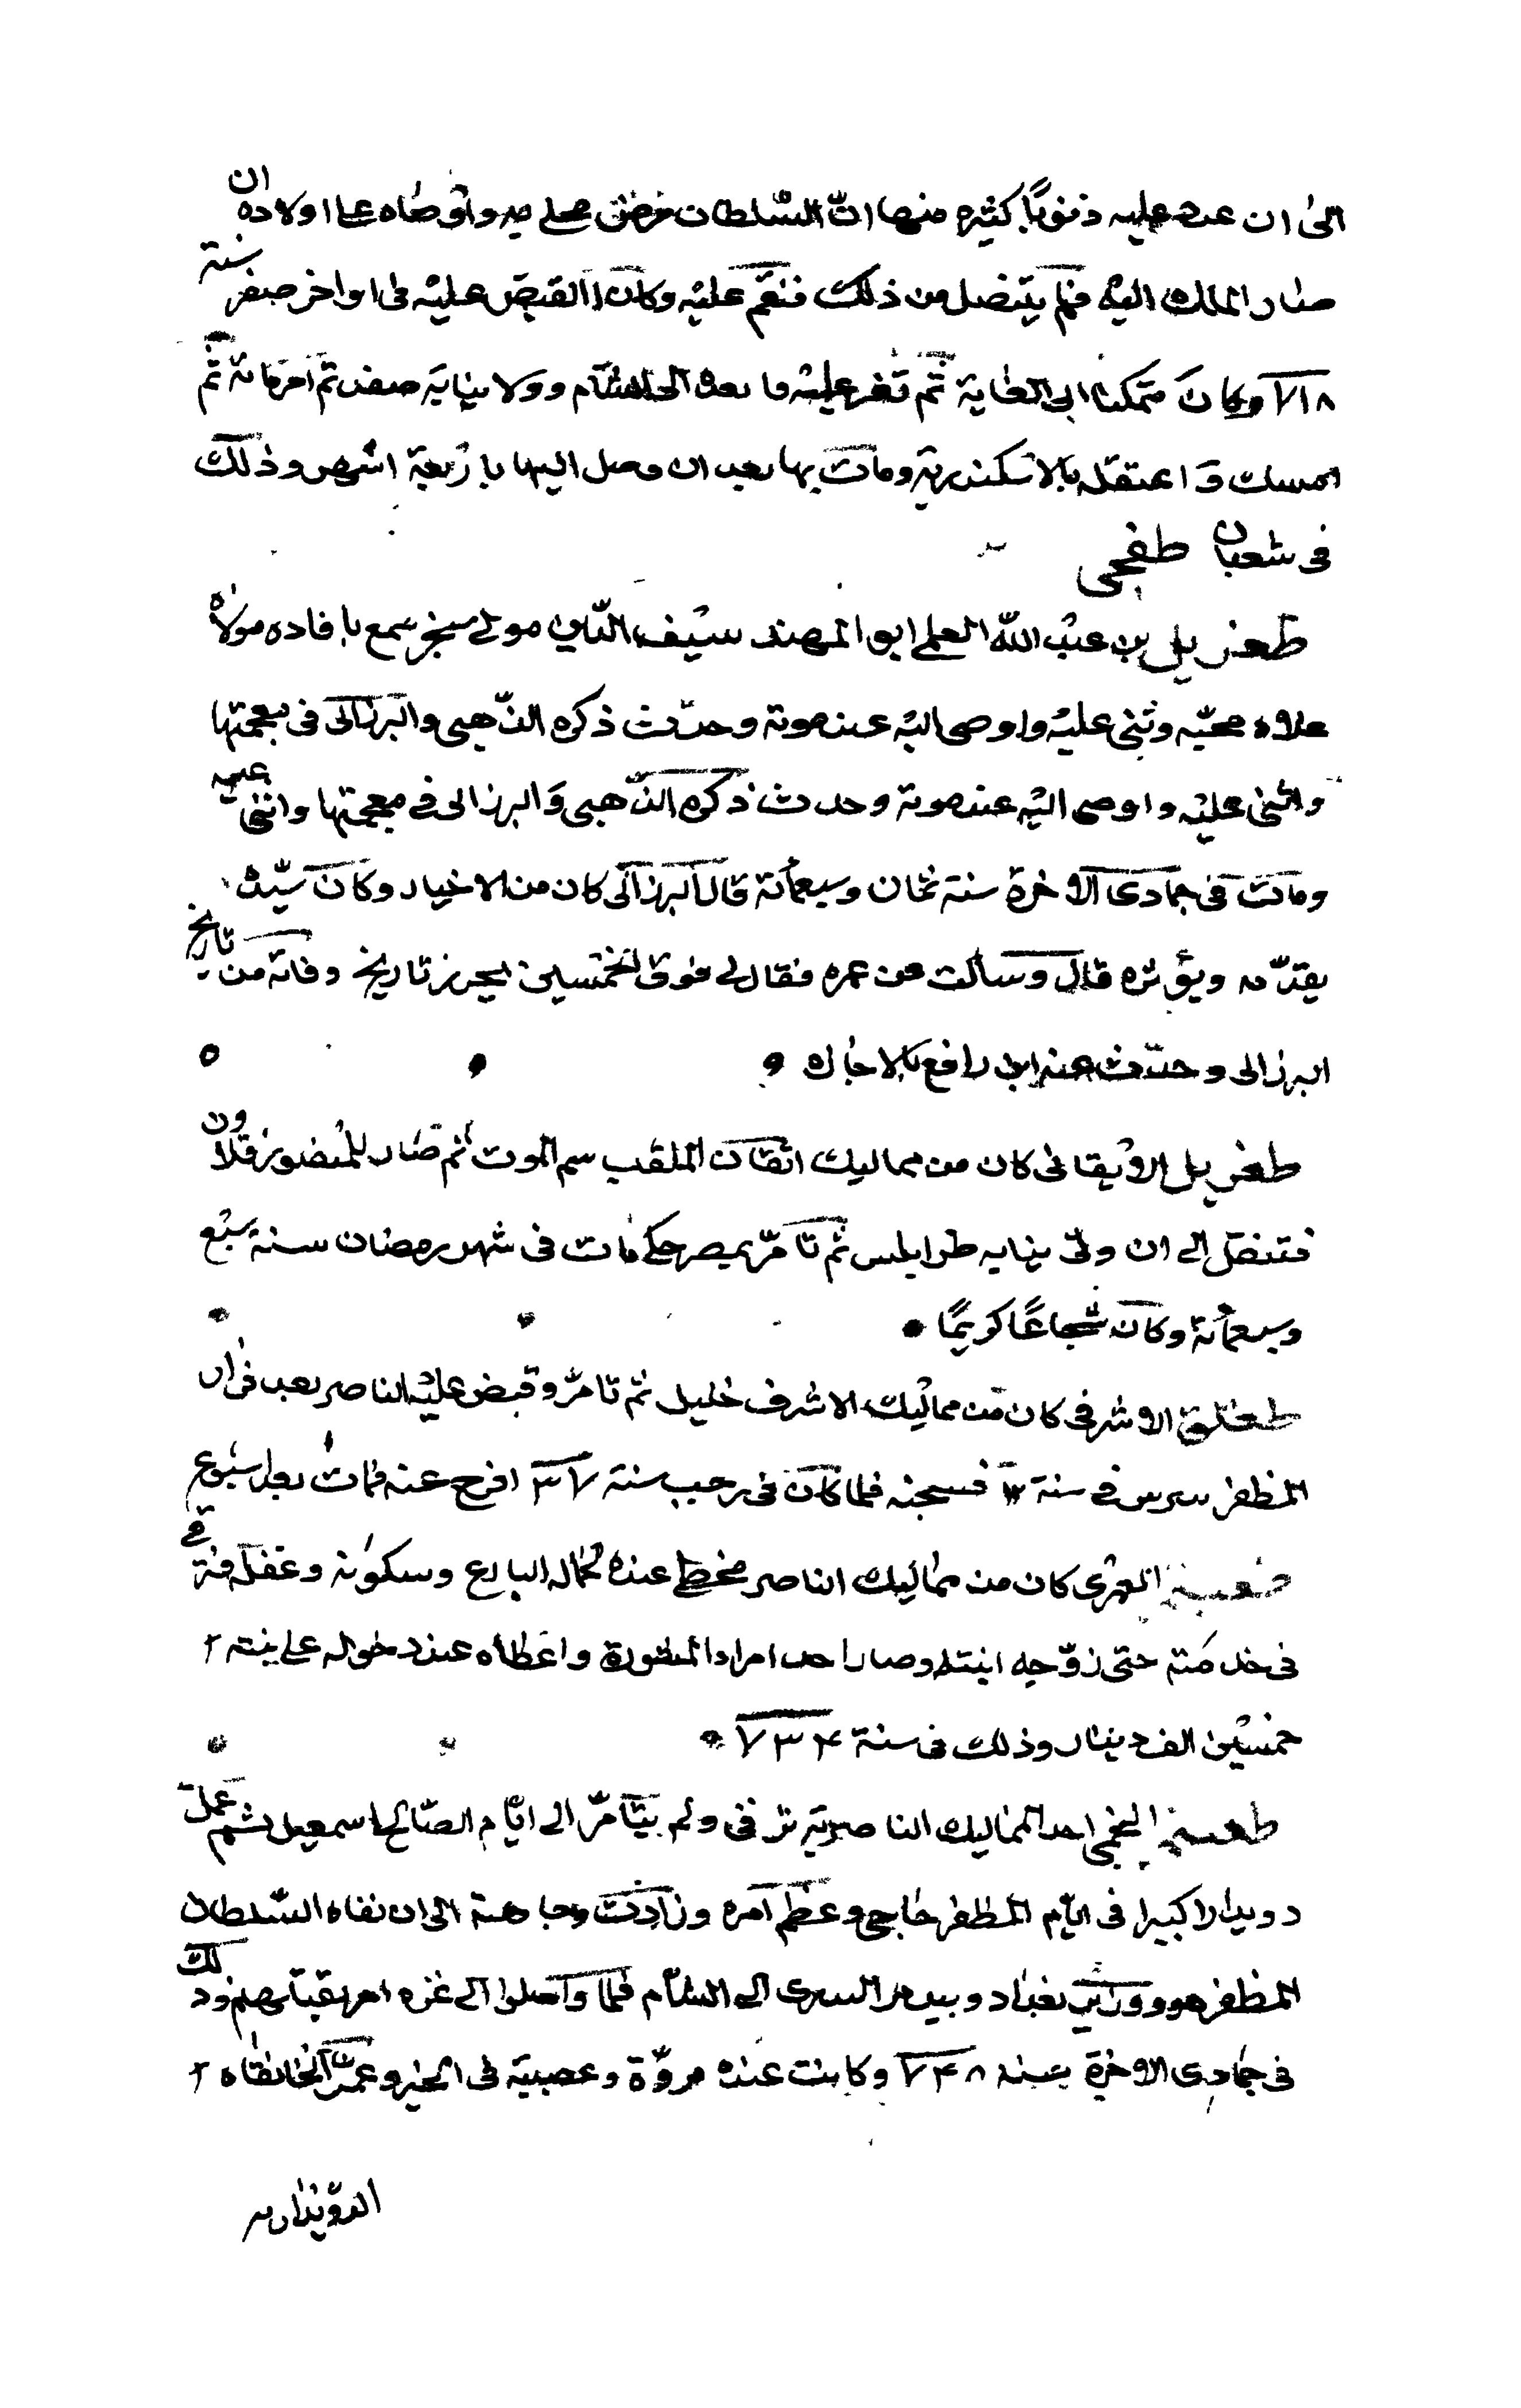 الى ان عد عليه ذنوبًا كثيره منها انّ السّلطان مرض مرض واوصاه على اولاده ان
صار الملك اليه فلم يتنصل من ذلك فنقم عليه وكان القبض عليه فى اواخر صفر سنة
٧١٨ وكان متمكنا الى الغاية ثم تغير عليه ما بعده الى الشام وولاه نيابة صفد ثم احرمانه ثم
امسك واعتقله بالاسكندرية ومات بها بعد ان وصل اليها باربعة اشهر وذلك
فى شعبان طغجى
طغريل بن عبد الله العلمى ابو المهند سيف الدّين مولى سنجر سمع بافاده مولاه
علاه محبّه وثنى عليه واوصى اليه عند موته وحدّث ذكره الذّهبى والبرزالى فى معجمتها
واثنى عليه واوصى اليه عند موته وحدث ذكره الذّهبى والبرزالى فى معجمتها واثنى عليه
ومات فى جمادى الاخرة سنة ثمان وسبعمأئة قال البرزالى كان من الاخيار وكان سيّده
يقدّمه ويؤثره قال وسألت عن عمره فقال لى فوق الخمسين يحرر تاريخ وفاته من تاريخ
البرزالى وحدّث عنه ابن رافع بالاجازه
طغريل الايقانى كان من مماليك اتقان الملقب سم الموت ثم صار للمنصور قلاون
فتنقل الى ان ولى نيابه طرابلس ثم تامّر بمصر حتى مات فى شهر رمضان سنة سبع
وسبعمأئة وكان شجاعًا كريمًا
طغلق الاشرفى كان من مماليك الاشرف خليل ثم تامّر وقبض عليه الناصر بعد فرار
المظفر بيبرس فى سنة فسجنه فلما كان فى رجب سنة ٧٣٦ افرج عنه فمات بعد اسبوع
العمرى كان من مماليك الناصر فحظى عنده لجماله البارع وسكونه وعقله فترقى
فى خدمته حتى زوّجه ابنته وصار احد امراء المشورة واعطاه عند دخوله على بنته
خمسين الف دينار وذلك فى سنة ٧٣٤
النجمى احد المماليك الناصرية ترقى ولم يتامّر الى ايّام الصّالح اسمعيل ثم عمل
دويدارا كبيرا فى ايّام المظفر حاجى وعظم امره وزادت وجاهته الى ان نفاه السّلطان
المظفر هو ووزير بغداد وبيدمر البدرى الى الشام فلما واصلوا الى غزه امر بقتلهم وذلك
فى جمادى الاخرة سنة ٧٤٨ وكانت عنده مروّة وعصبية فى الخير وعمّر الخانقاه
الدوّيداريه